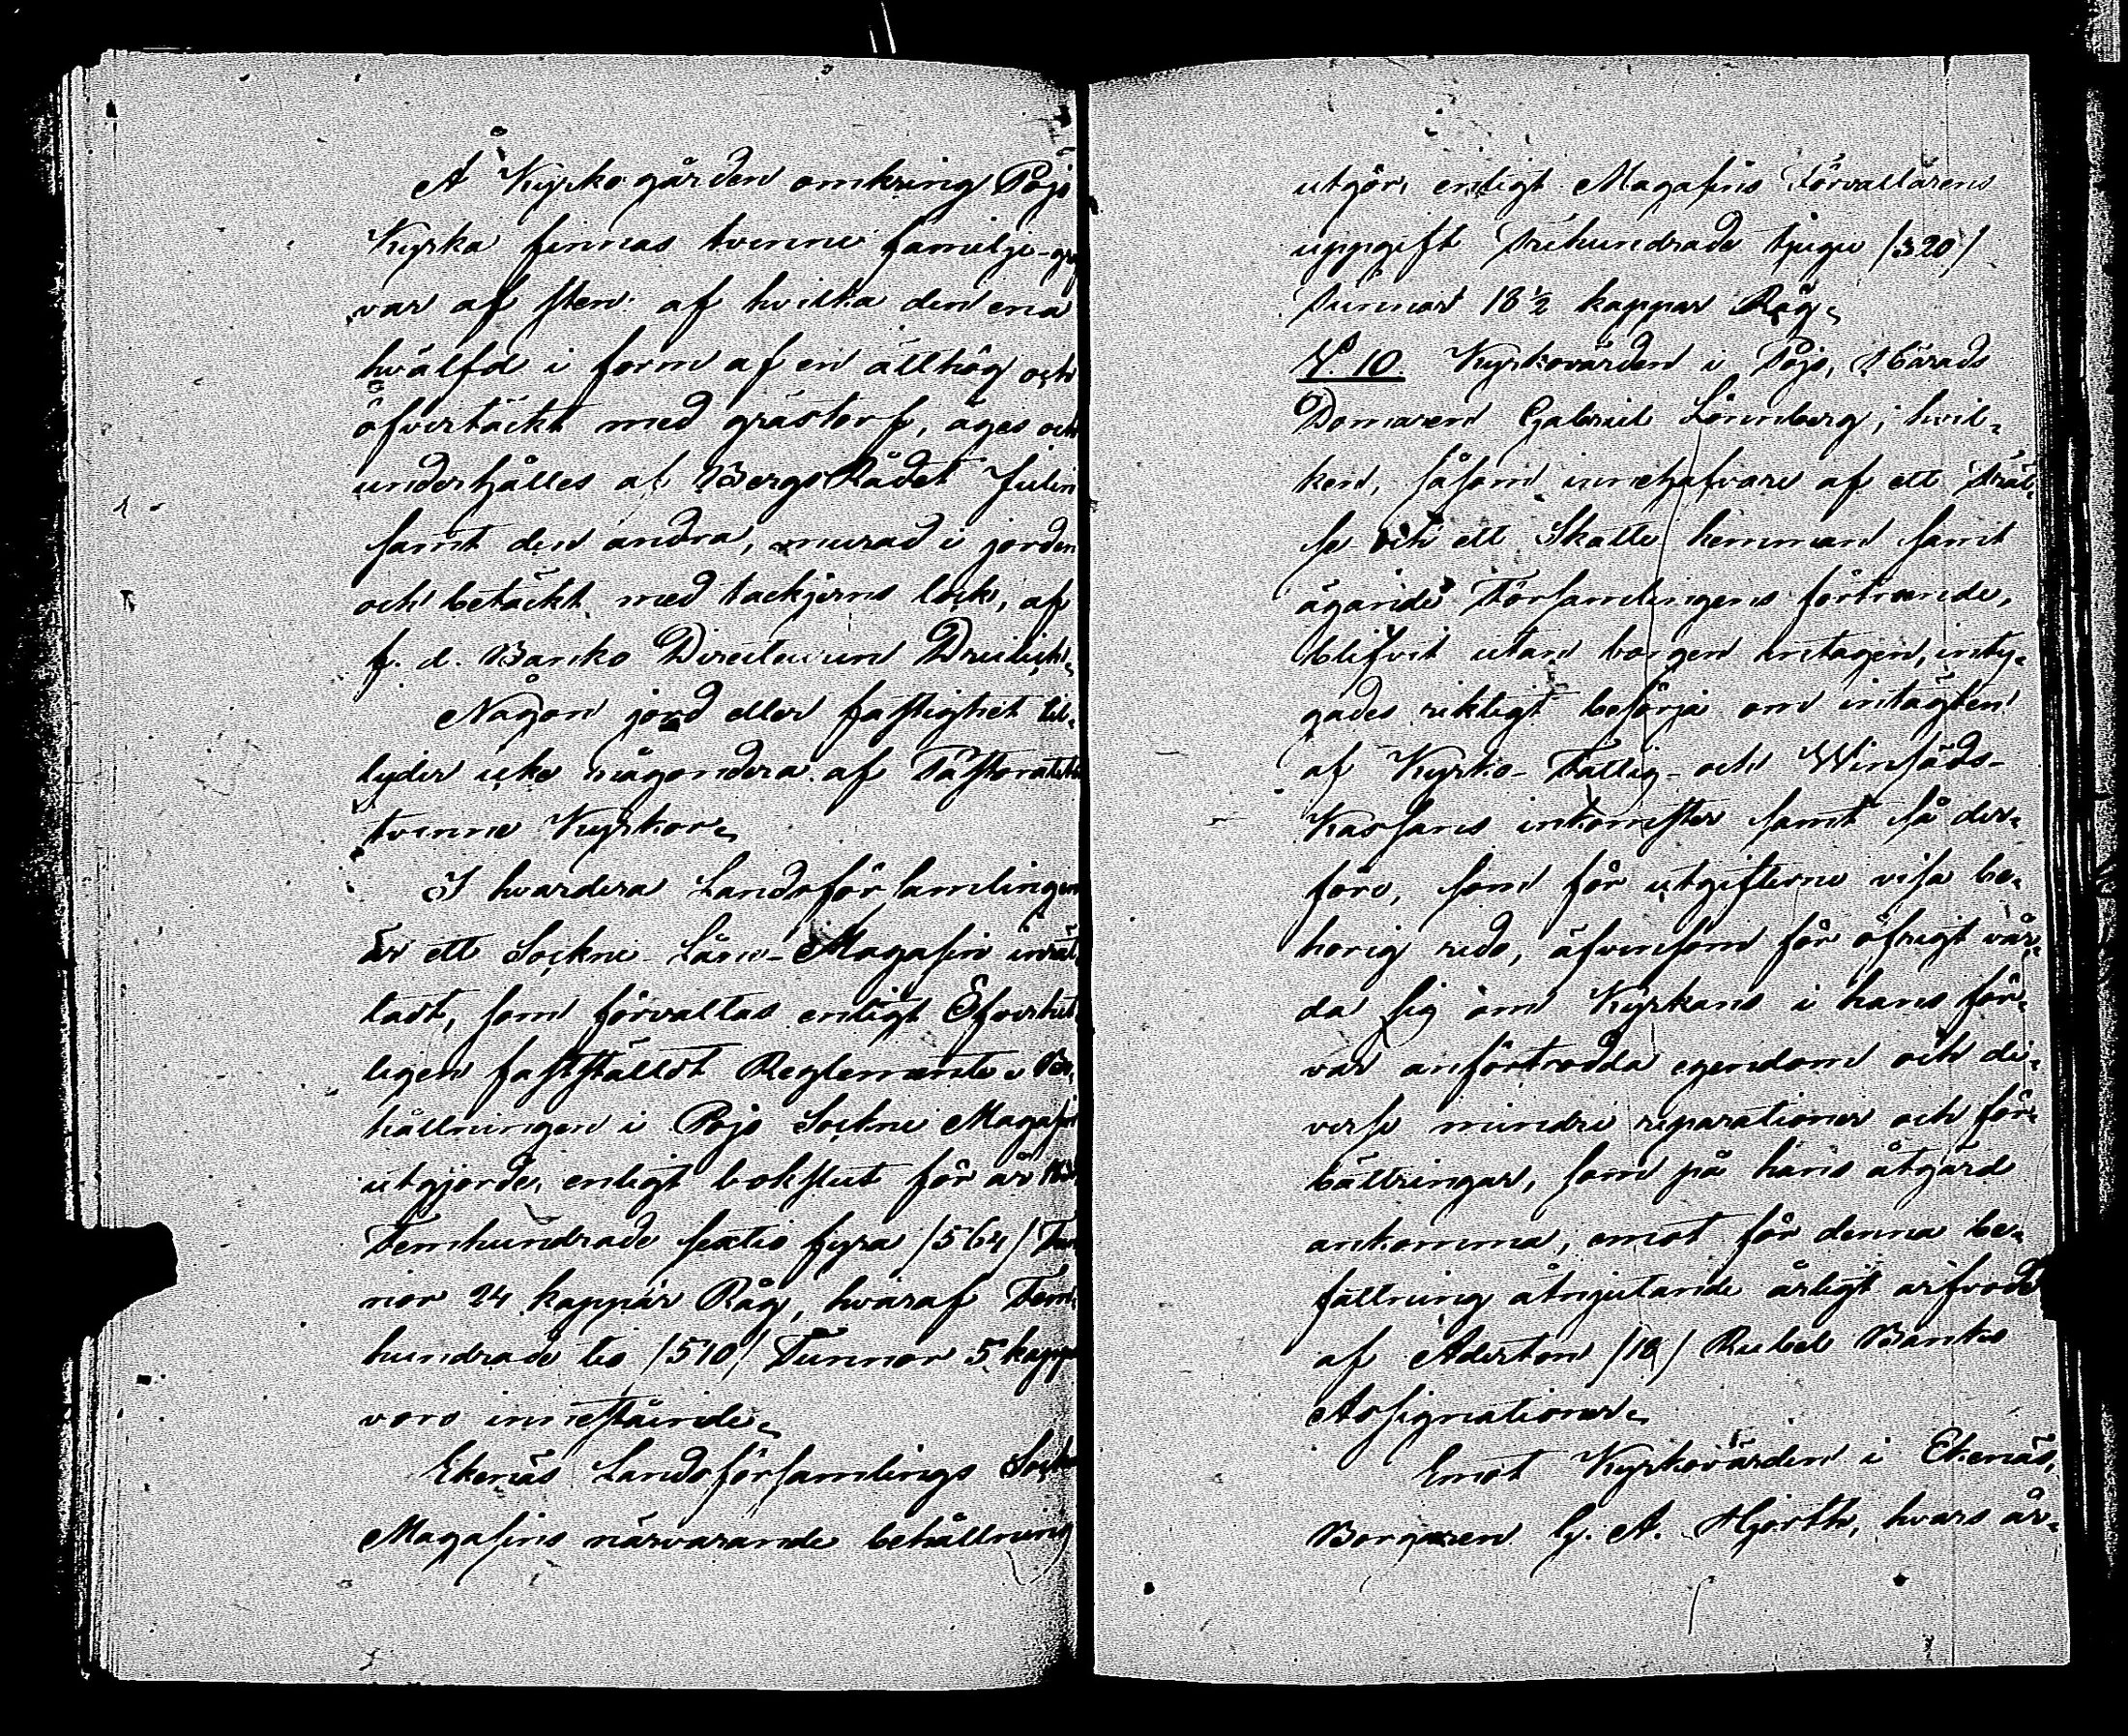 Å Kyrkogården omkring Pojo
Kyrka finnas tvenne familje-graf
var af sten: af hvilka den ena
hvälfd i form af en ätthög och
öfvertäckt med grästorf, äges och
underhålles af Bergs Rådet Julin
samt den andra, murad i jorden
och betäckt med tackjerns lock, af
f. d. Banko Directeuren
Någon jord eller fastighet til-
lyder icke någondera af Pastoratets
tvenne Kyrkor.
I hvardera Landsförsamlingen
är ett Sockne-Låne-Magasin inrät
tadt, som förvaltas enligt Öfverhet
ligen fastställdt Reglemente. Be-
hållningen i Pojo Sockne Magasin
utgjorde, enligt bokslut för år
Femhundrade sextio fyra /564/ Tun
nor 24 kappar Råg, hvaraf Fem-
hundrade tio /510/ Tunnor 5 kapp
voro innestående.
Ekenäs Landsförsamlings Sockne
Magasins närvarande behållning
utgör, enligt Magasins Förvaltarens
uppgift Trehundrade tjugu /320/
Tunnor 18 ½ kappar Råg.
N:o 10. Kyrkovärden i Pojo, Härads
Domaren Gabriel Lönnberg; hvil-
ken, såsom innehafvare af ett Fräl-
se och ett Skatte hemman samt
ägande Församlingens förtroende,
blifvit utan borgen antagen, inty-
gades riktigt besörja om intägten
af Kyrko- Fattig- och Winsäds-
Kassans inkomster samt så der-
före, som för utgifterne visa be-
horig redo, äfvensom för öfrigt vår-
da sig om Kyrkans i hans för-
var anförtrodda egendom och di-
verse mindre reparationer och för-
bättringar, som på hans åtgärd
ankomma, emot för denna be-
fattning åtnjutande årligt arfvode
af Aderton /18/ Rubel Banko
Assignationer.
Emot Kyrkovärden i Ekenäs,
Borgaren G. A. Hjorth, hvars år-